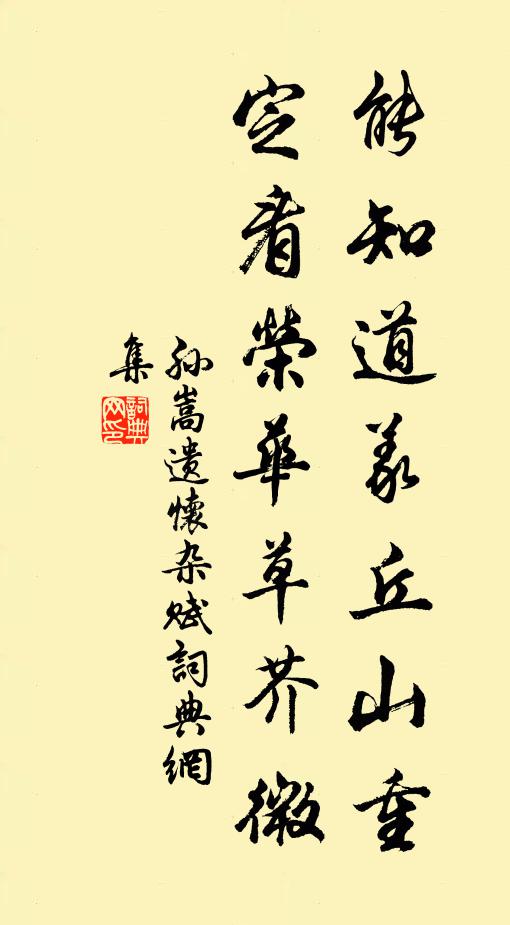 能知道義丘山重
定看榮華草芥微
孙嵩遗懷杂赋詞典網
集
詞典网印